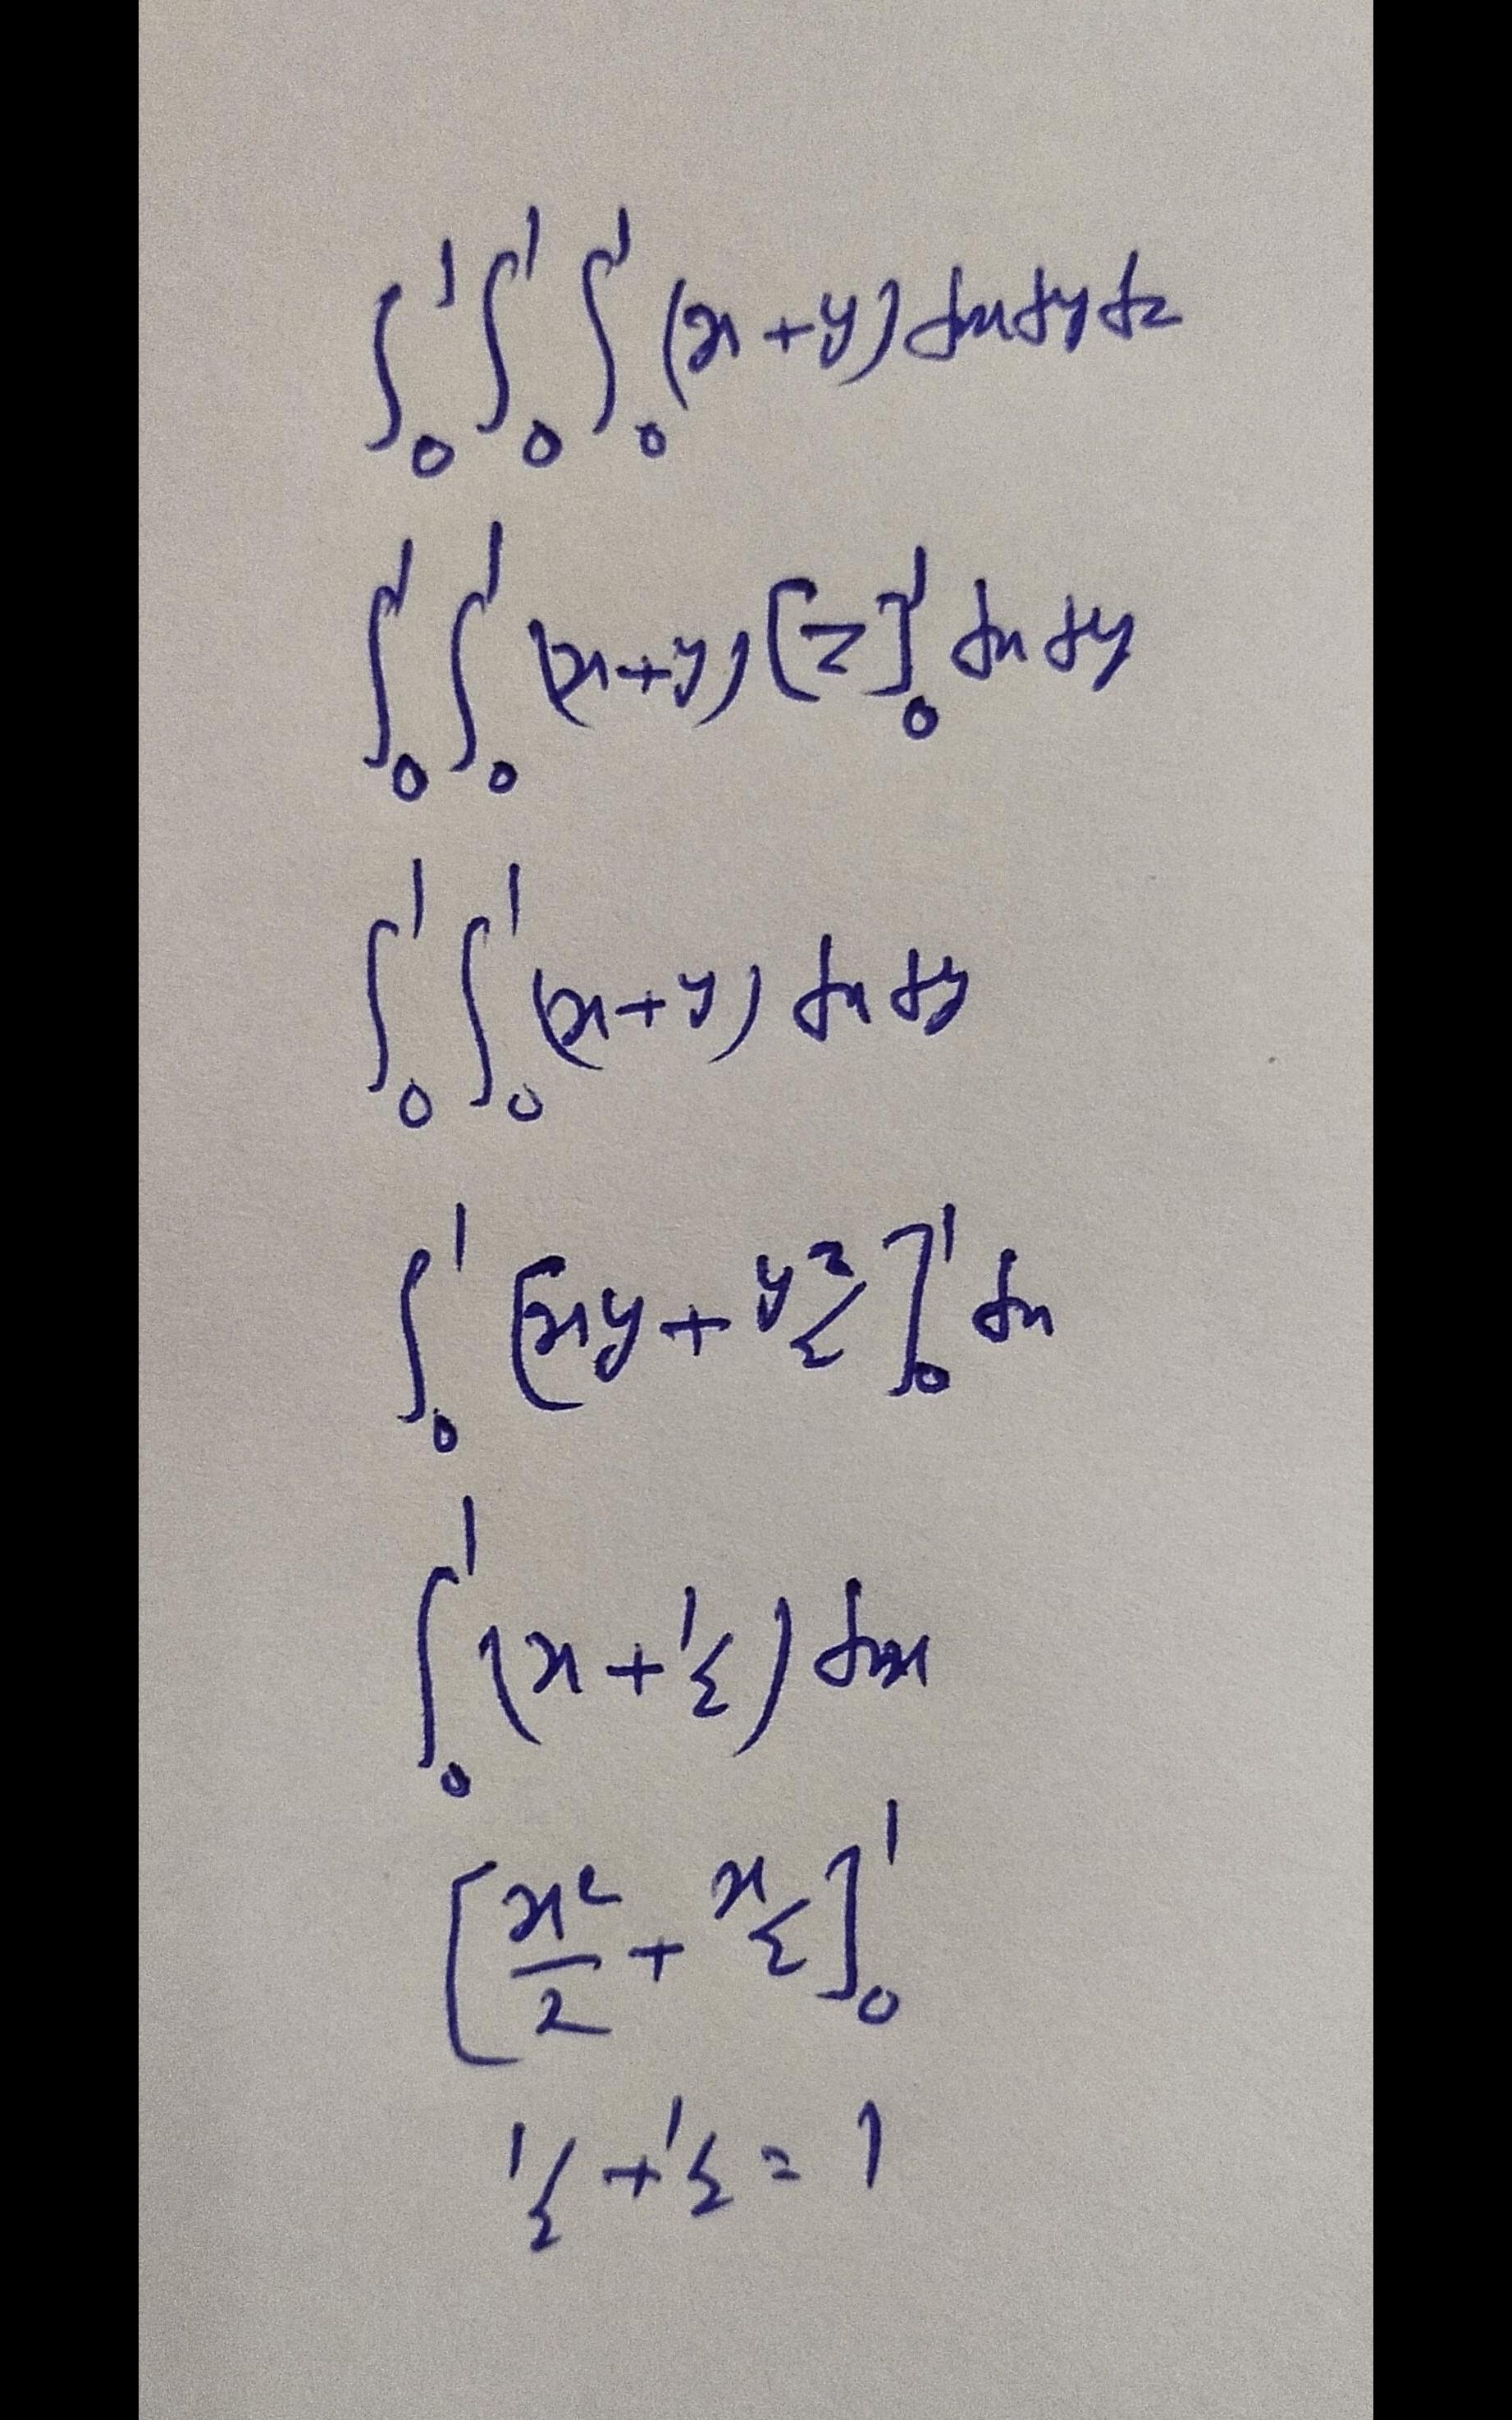 ∫₀¹ ∫₀¹ ∫₀¹ (x+y) dx dy dz
∫₀¹ ∫₀¹ (x+y) [z]₀¹ dx dy
∫₀¹ ∫₀¹ (x+y) dx dy
∫₀¹ [xy + y²/2]₀¹ dx
∫₀¹ (x + 1/2) dx
[x²/2 + x/2]₀¹
1/2 + 1/2 = 1